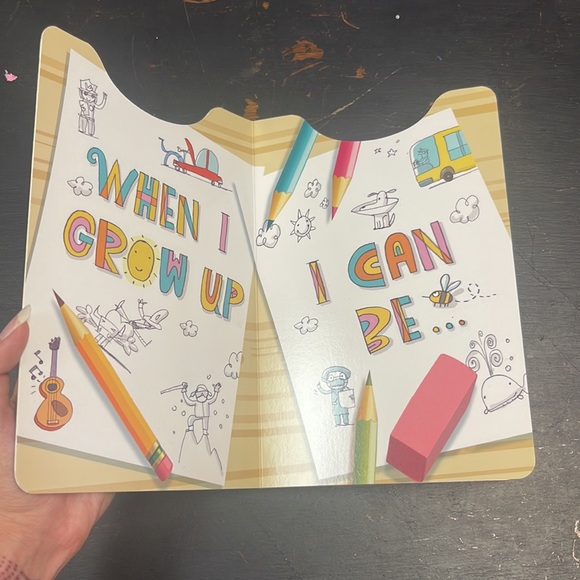 WHEN I
GROW UP
I CAN
BE...